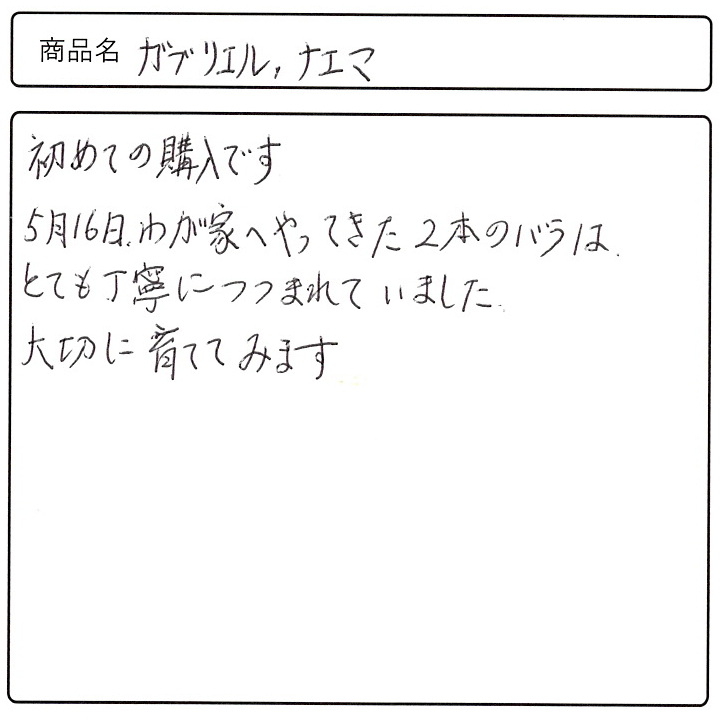 商品名 ガブリエル,ナエマ
初めての購入です
5月16日.わが家へやってきた2本のバラは.
とても丁寧につつまれていました.
大切に育ててみます